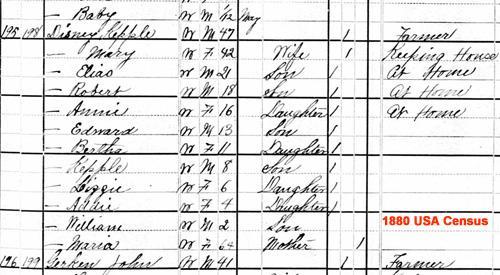 — Baby W M 1/12 May
195 198 Disney Kepple W M 47 1 Farmer
— Mary W F 42 Wife 1 Keeping House
— Elias W M 21 Son 1 At Home
— Robert W M 18 Son 1 At Home
— Annie W F 16 Daughter 1 At Home
— Edward W M 13 Son 1
— Bertha W F 11 Daughter 1
— Kepple W M 8 Son 1
— Lizzie W F 6 Daughter 1
— Addie W F 4 Daughter 1
— William W M 2 Son 1880 USA Census
— Maria W F 64 Mother 1
196 199 Gerken John W M 41 1 Farmer